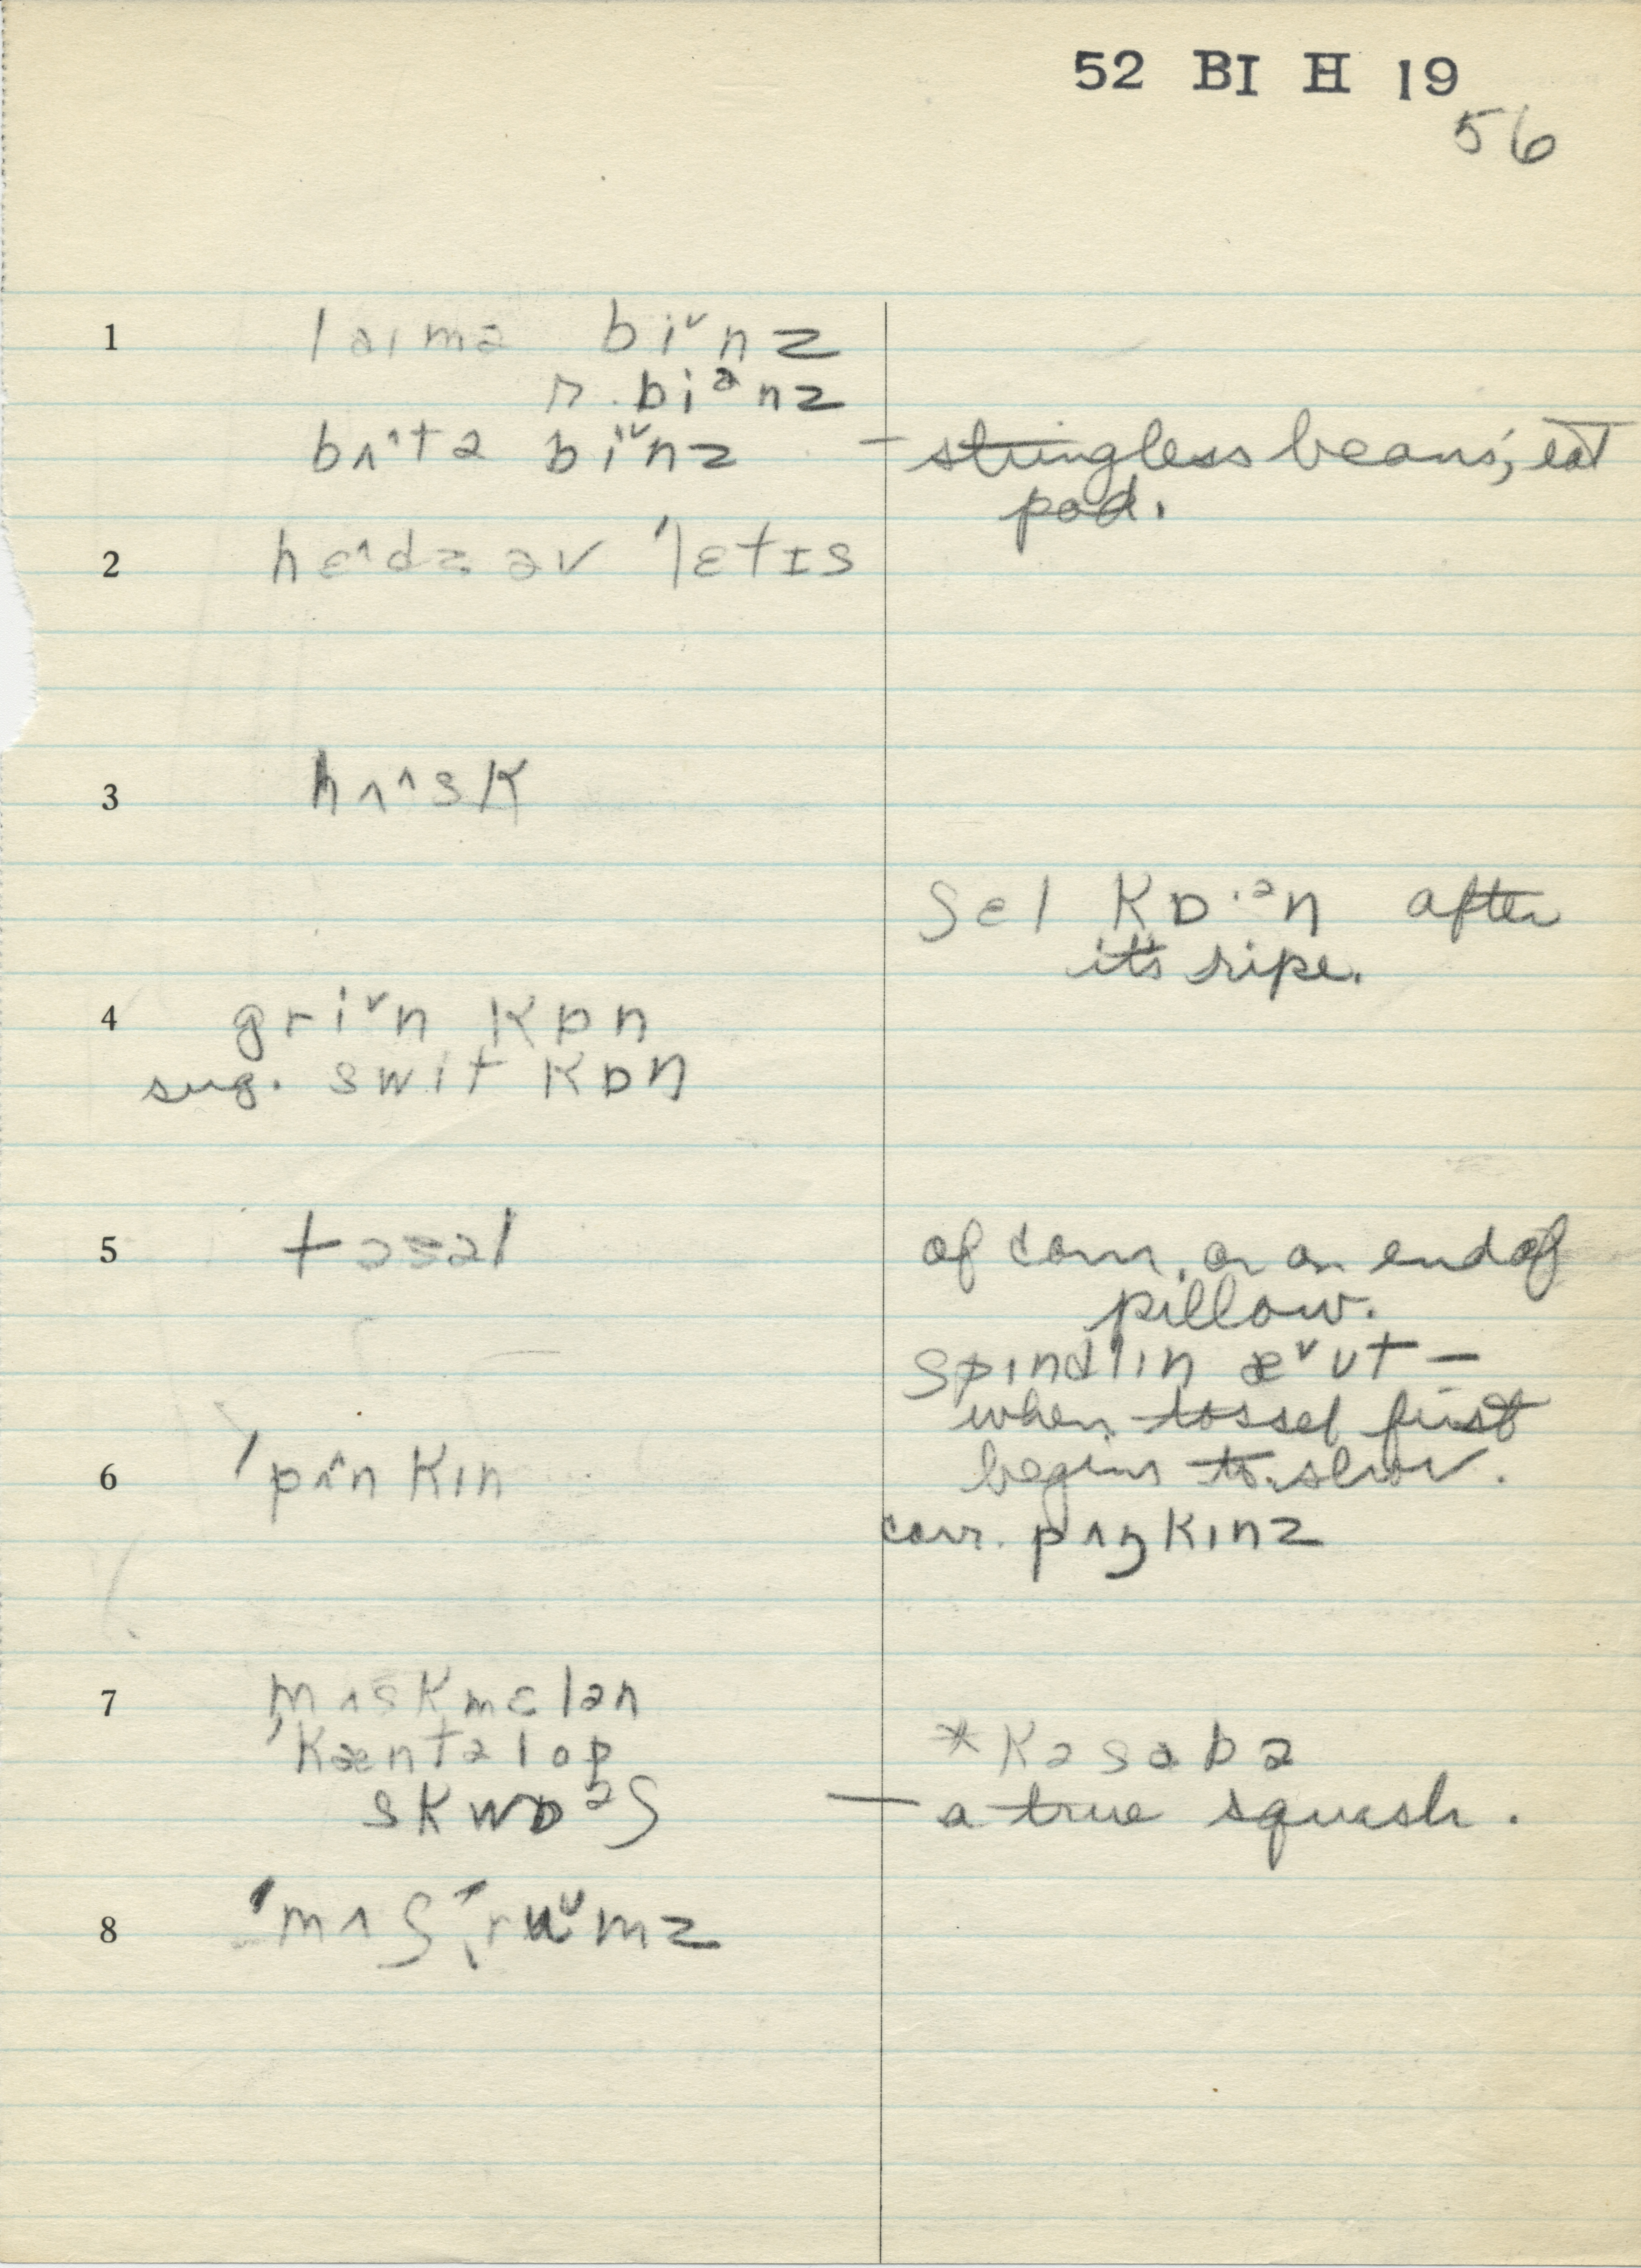 52 BI H 19
56
1 laɪmə biˇnz
r. biᵊnz
bʌ˄tə biˇnz — stringless beans, eat
pod.
2 hɛ˄dz əv 'lɛtɪs
3 hʌ˄sk
ʃɛl kɒ·ᵊn after
it's ripe.
4 griˇn kɒn
sug. swit kɒn
5 tasəl of corn, or on end of
pillow.
spɪndlɪn æˇʊt —
when tossel first
begins to show.
6 'pʌ˄nkɪn
corr. pʌŋkɪnz
7 mʌskmɛlən
'kæntəlop *kəsabə
skwɒᵊʃ — a true squash.
8 'mʌʃˌruˇmz